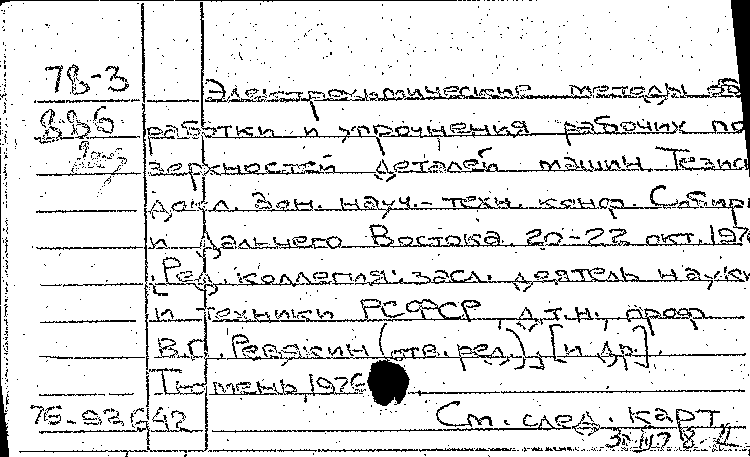 78-3
Электрохимические методы об
886
работки и упрочнения рабочих по
верхностей деталей машин. Тезисы
докл. зон. науч.-техн. конф. Сибири
и Дальнего Востока. 20-22 окт. 1976
. [Ред. коллегия: засл. деятель науки
и техники РСФСР, д.т.н., проф.
В.П. Ревякин (отв. ред.), [и др].
Тюмень, 1976.
76-93642 См. след. карт.